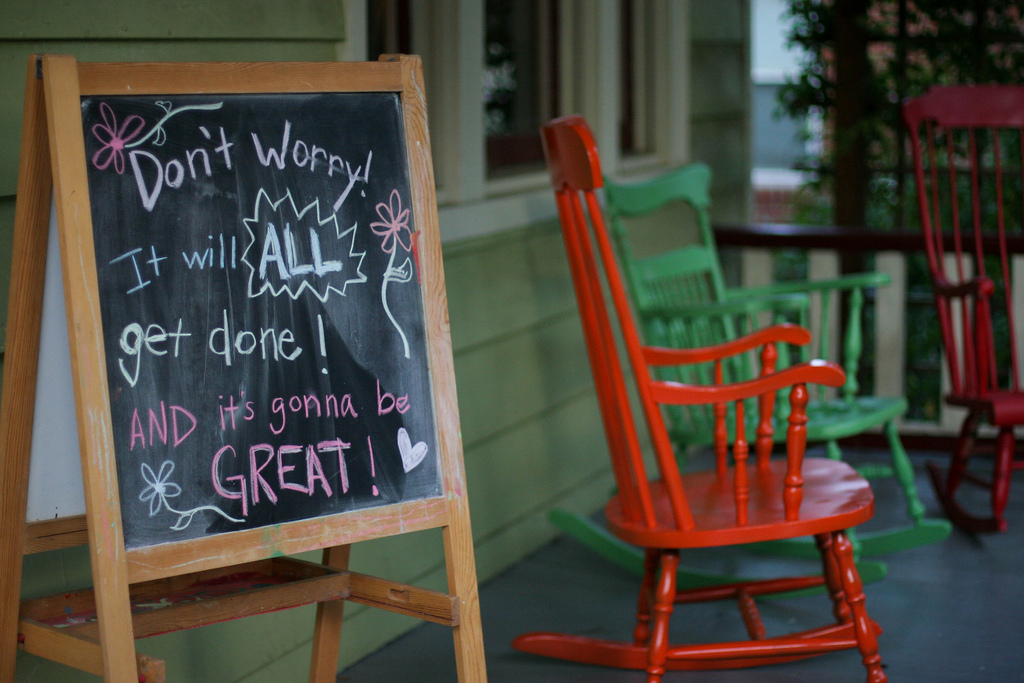 Don't Worry!
It will ALL
get done!
AND it's gonna be
GREAT!